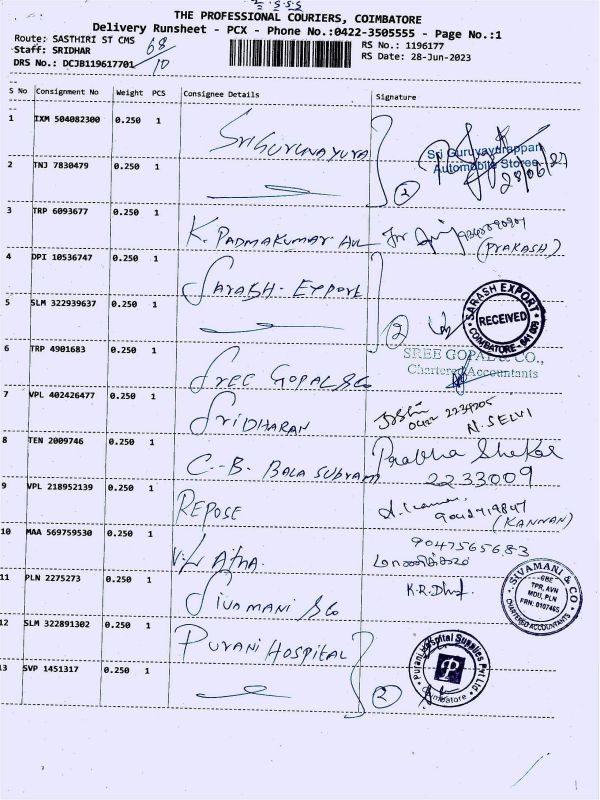 THE PROFESSIONAL COURIERS, COIMBATORE
Delivery Runsheet - PCX - Phone No.:0422-3505555 - Page No.:1
Route: SASTHIRI ST CMS 68/10
Staff: SRIDHAR
DRS No.: DCJB119617701
RS No.: 1196177
RS Date: 28-Jun-2023
S No Consignment No Weight PCS Consignee Details Signature
1 IXM 504082300 0.250 1 SriGuruvayura
Sri Guruvayurappan
Automobile Stores
28/06/23
2 TNJ 7830479 0.250 1 2
3 TRP 6093677 0.250 1 K. PADMAKUMAR
(PRAKASH)
4 DPI 10536747 0.250 1 SARASH-EXPORT
5 SLM 322939637 0.250 1 2
SARASH EXPORT
RECEIVED
COIMBATORE - 641 009
6 TRP 4901683 0.250 1 SREE GOPAL & Co
SREE GOPAL & CO.,
Chartered Accountants
7 VPL 402426477 0.250 1 SRIDHARAN
0422 2234205
N. SELVI
8 TEN 2009746 0.250 1 C.-B. BALA SUBRAM
Prabha Shekar
2233009
9 VPL 218952139 0.250 1 REPOSE
(KANNAN)
10 MAA 569759530 0.250 1
9047565683
11 PLN 2275273 0.250 1 SIVAMANI & Co
K.R.
SIVAMANI & CO.
GBE
TPR, AVN
MDU, PLN
FRN: 010746S
CHARTERED ACCOUNTANTS
12 SLM 322891302 0.250 1 PURANI HOSPITAL
Purani Hospital Supplies Pvt Ltd
P
Coimbatore
13 SVP 1451317 0.250 1 2